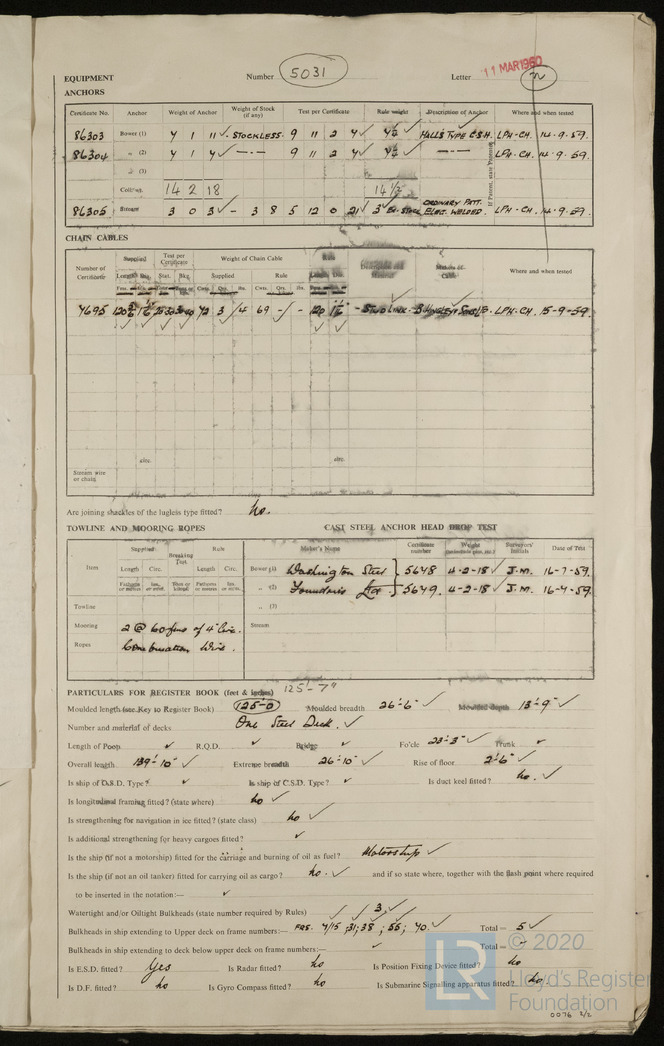 EQUIPMENT Number 5031 Letter 11 MAR 1960
ANCHORS
Certificate No. Anchor Weight of Anchor Weight of Stock (if any) Test per Certificate Rule weight Description of Anchor Where and when tested
86303 Bower (1) 4 1 11 STOCKLESS 9 11 2 4 HALL'S TYPE C.S.H. LPH-CH. 14.9.59.
86304 „ (2) 4 1 4 -"- 9 11 2 4 -"- LPH-CH. 14.9.59.
„ (3)
Collec. 14 2 18 14½
86305 Stream 3 0 3 - 3 8 5 12 0 21 3 ORDINARY PATT. ELECT. WELDED. LPH-CH. 14.9.59.
CHAIN CABLES
Number of Certificate Supplied Test per Certificate Weight of Chain Cable Where and when tested
Length Stat. Bkg. Supplied Rule
Cwts. Qrs. lbs. Cwts. Qrs. lbs.
7695 72 3 14 69 - - 120 STUD LINK LPH-CH. 15-9-59.
circ. circ.
Stream wire or chain
Are joining shackles of the lugless type fitted? No.
TOWLINE AND MOORING ROPES CAST STEEL ANCHOR HEAD DROP TEST
Item Supplied Breaking Test Rule Maker's Name Certificate number Weight Surveyors' Initials Date of Test
Length Circ. Length Circ.
Bower (1) Washington Steel 5648 4-2-18 J.M. 16-7-59.
„ (2) Foundries Ltd 5649. 4-2-18 J.M. 16-4-59.
Towline „ (3)
Mooring Ropes 2 @ 60 fms of 4" Circ. Stream
Combination Wire.
PARTICULARS FOR REGISTER BOOK (feet & inches) 125'-7"
Moulded length (see Key to Register Book) 125'-0 Moulded breadth 26'-6" Moulded depth 13'-9"
Number and material of decks One Steel Deck.
Length of Poop R.Q.D. Bridge Fo'cle 23'-3" Trunk
Overall length 139'-10" Extreme breadth 26'-10" Rise of floor 2'-6"
Is ship of O.S.D. Type? Is ship of C.S.D. Type? Is duct keel fitted? No.
Is longitudinal framing fitted? (state where) No
Is strengthening for navigation in ice fitted? (state class) No
Is additional strengthening for heavy cargoes fitted?
Is the ship (if not a motorship) fitted for the carriage and burning of oil as fuel? Motorship
Is the ship (if not an oil tanker) fitted for carrying oil as cargo? No. and if so state where, together with the flash point where required
to be inserted in the notation:—
Watertight and/or Oiltight Bulkheads (state number required by Rules) 3
Bulkheads in ship extending to Upper deck on frame numbers:— FRS. 4/15 ; 31; 38 ; 55 ; 70. Total= 5
Bulkheads in ship extending to deck below upper deck on frame numbers:— Total=
Is E.S.D. fitted? Yes Is Radar fitted? No Is Position Fixing Device fitted? No
Is D.F. fitted? No Is Gyro Compass fitted? No Is Submarine Signalling apparatus fitted? No.
LR © 2020
Lloyd's Register
Foundation
0076 2/2